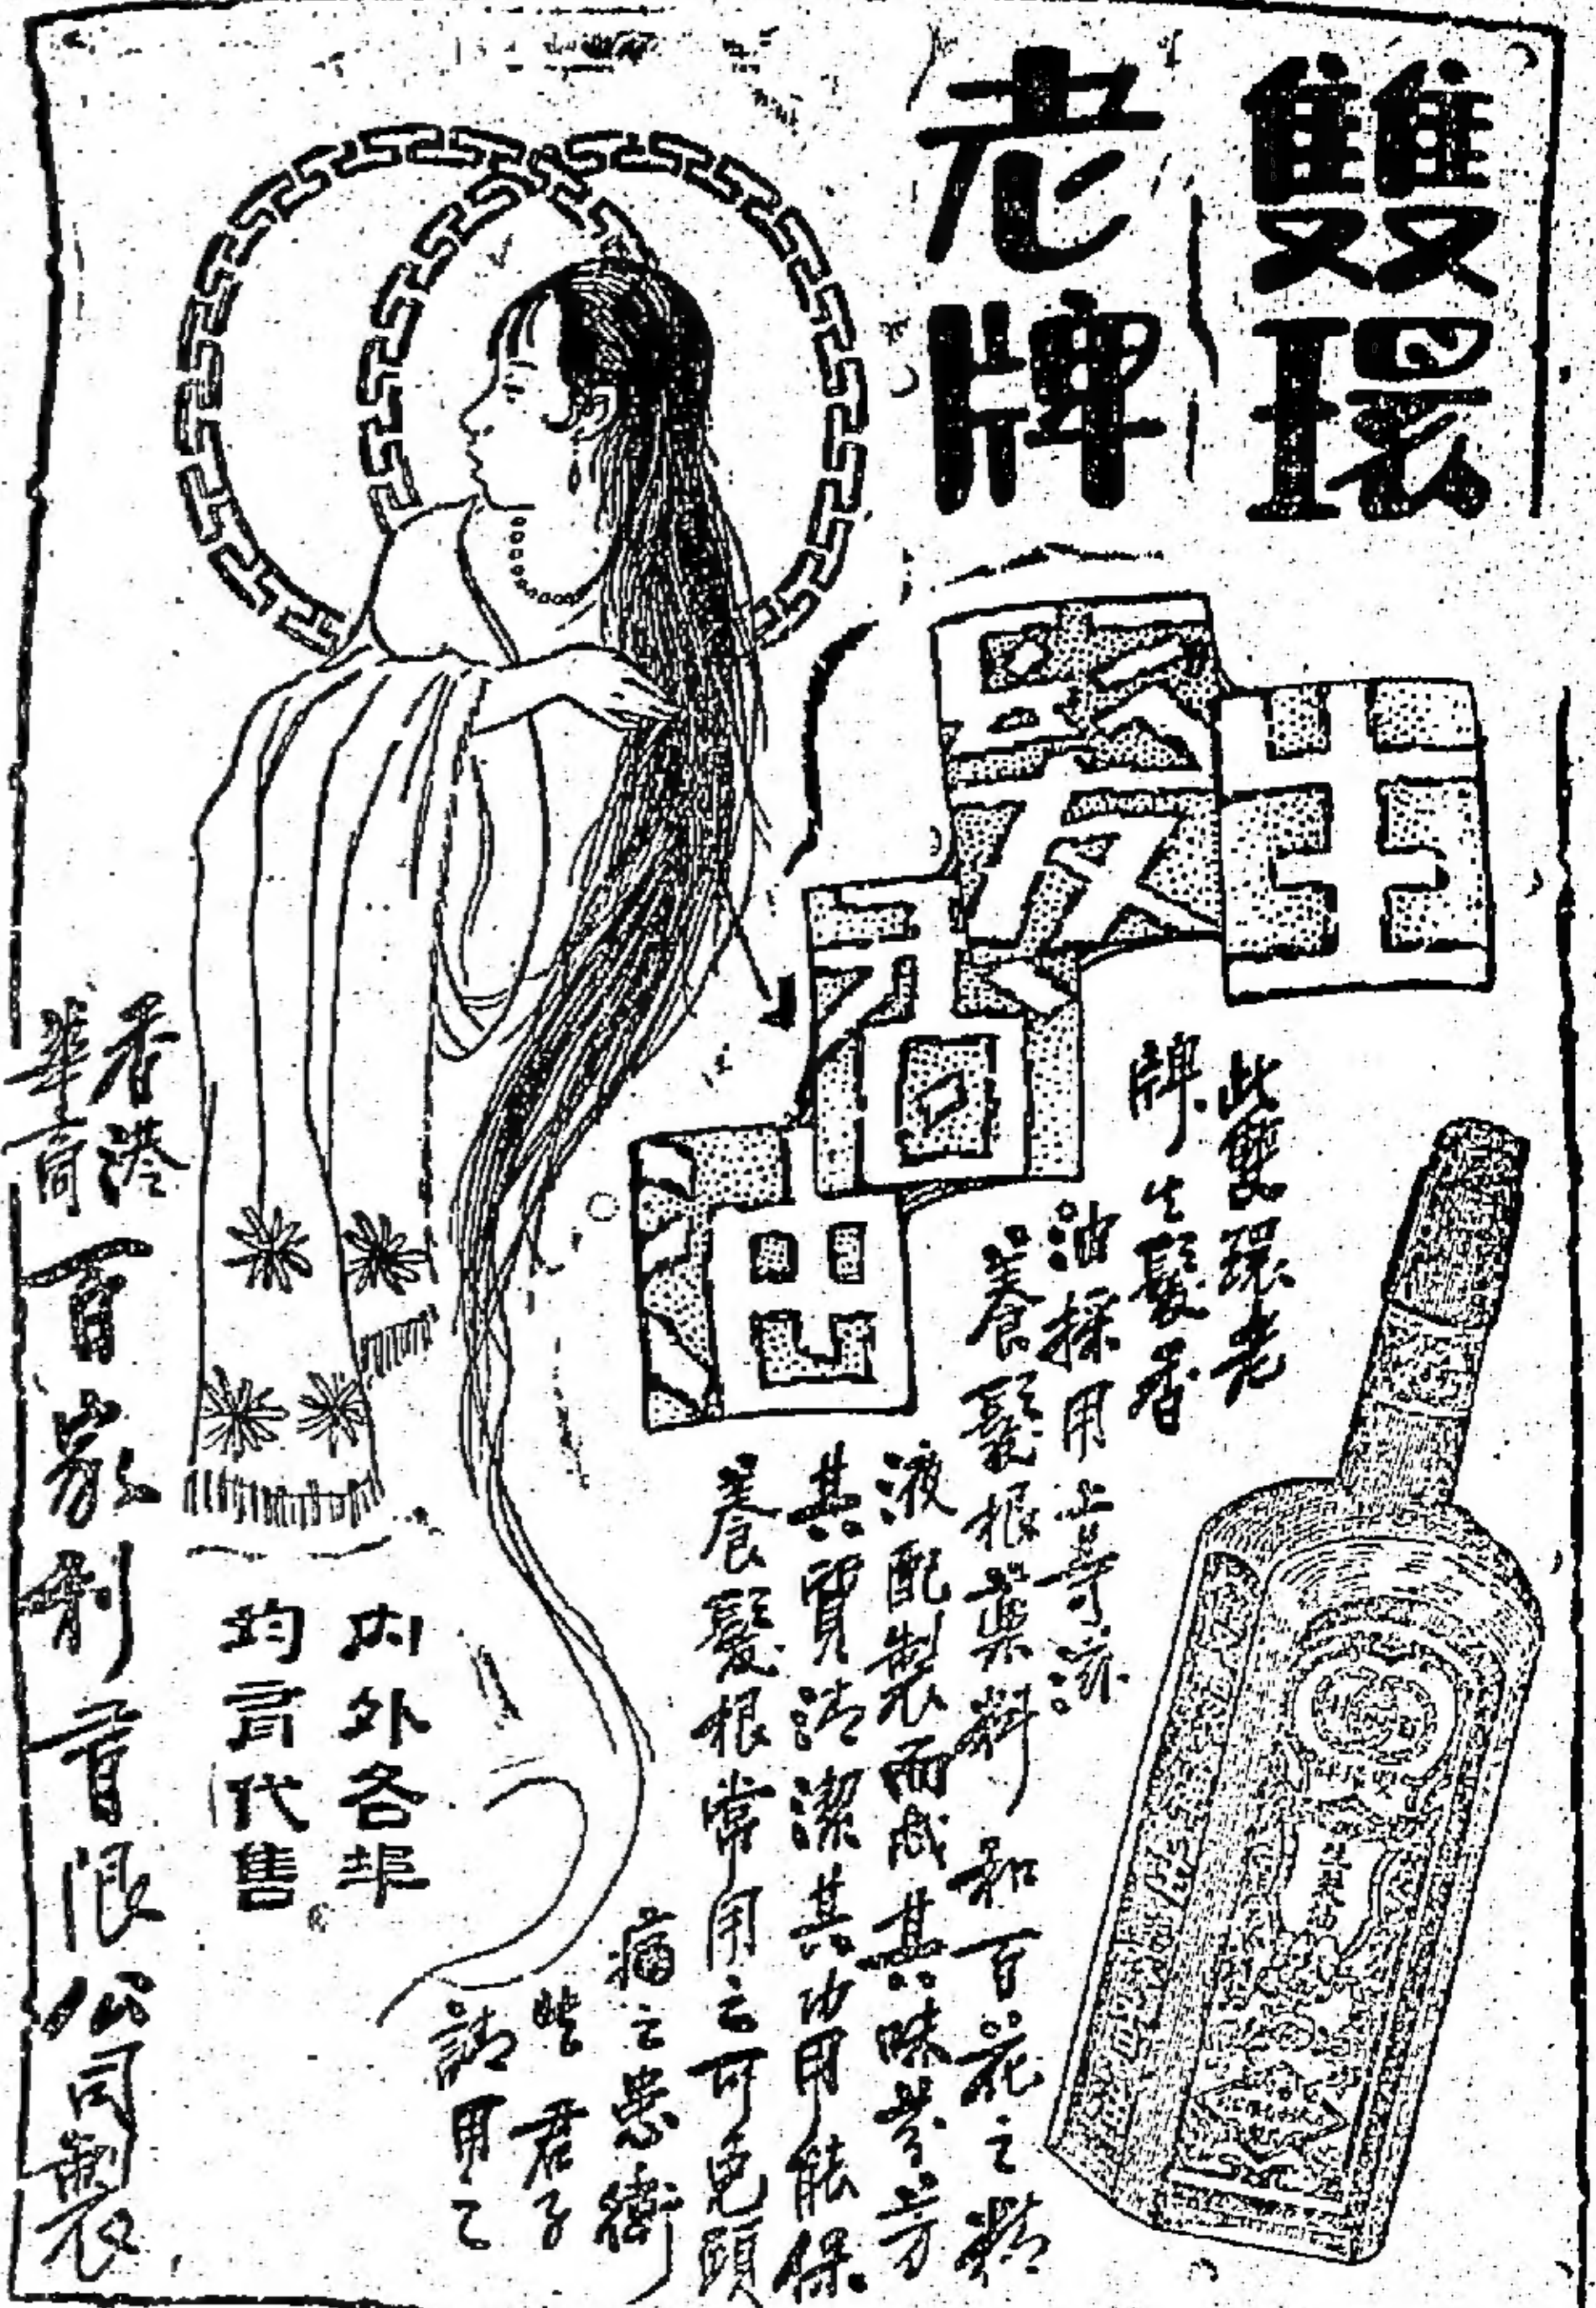 雙環
老牌
生髮香油
此雙環老
牌生髮香
油採用上等流
養髮根藥料和百花之精
液配製而成其味芬芳
其質清潔其功用能保
養髮根常用之可免頭
痛之患衛
生君子
請用之
內外各埠
均有代售
香港
華商
百家利有限公司製